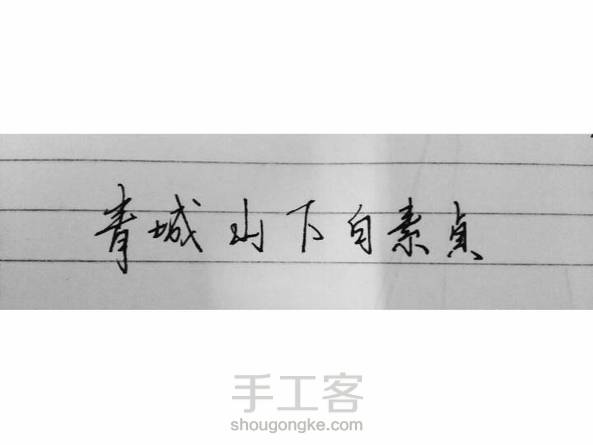 青城山下白素贞
手工客
shougongke.com